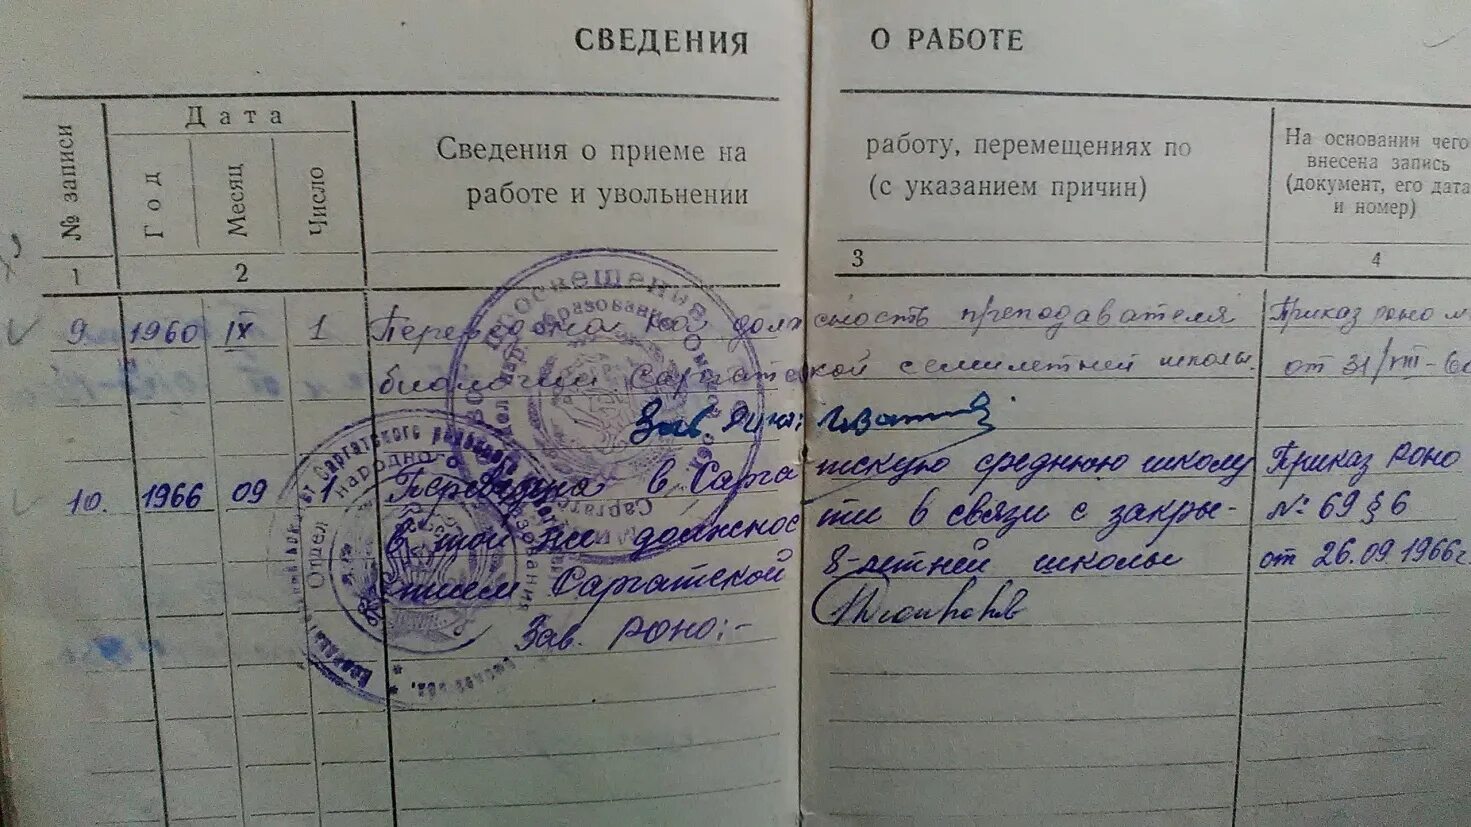 СВЕДЕНИЯ О РАБОТЕ
№ записи
Дата
Год
Месяц
Число
Сведения о приеме на работу, перемещениях по
работе и увольнении (с указанием причин)
На основании чего
внесена запись
(документ, его дата
и номер)
1 2 3 4
9 1960 IX 1 Переведена на должность преподавателя Приказ роно
биологии Саргатской семилетней школы. от 31/VIII-60
Зав. Роно:
10. 1966 09 1 Переведена в Саргатскую среднюю школу Приказ РОНО
в той же должности в связи с закры- № 69 § 6
тием Саргатской 8-летней школы от 26.09.1966г
Зав. РОНО:-
просвещения
Саргатского районного
Отдел народного образования